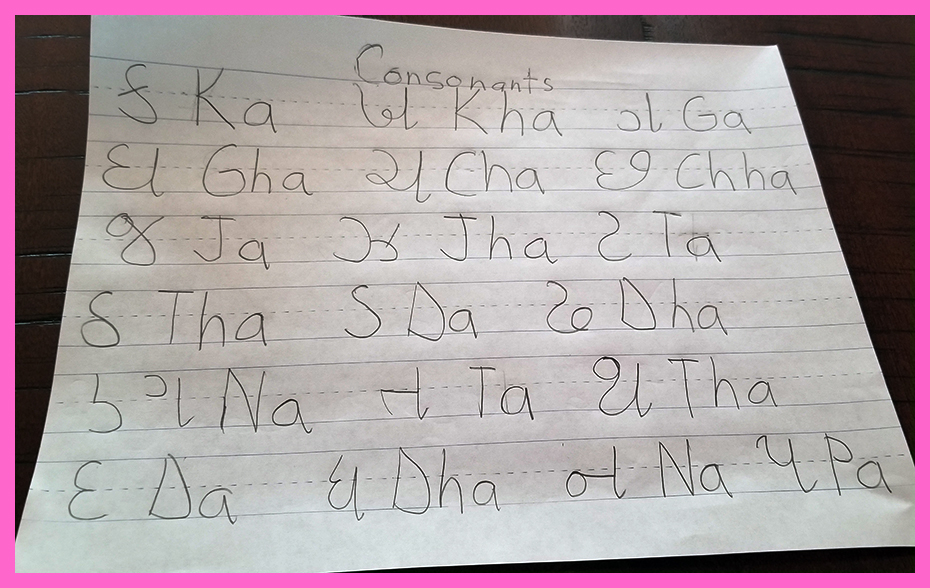 Consonants
ક Ka ખ Kha ગ Ga
ઘ Gha ચ Cha છ Chha
જ Ja ઝ Jha ટ Ta
ઠ Tha ડ Da ઢ Dha
ણ Na ત Ta થ Tha
દ Da ધ Dha ન Na પ Pa